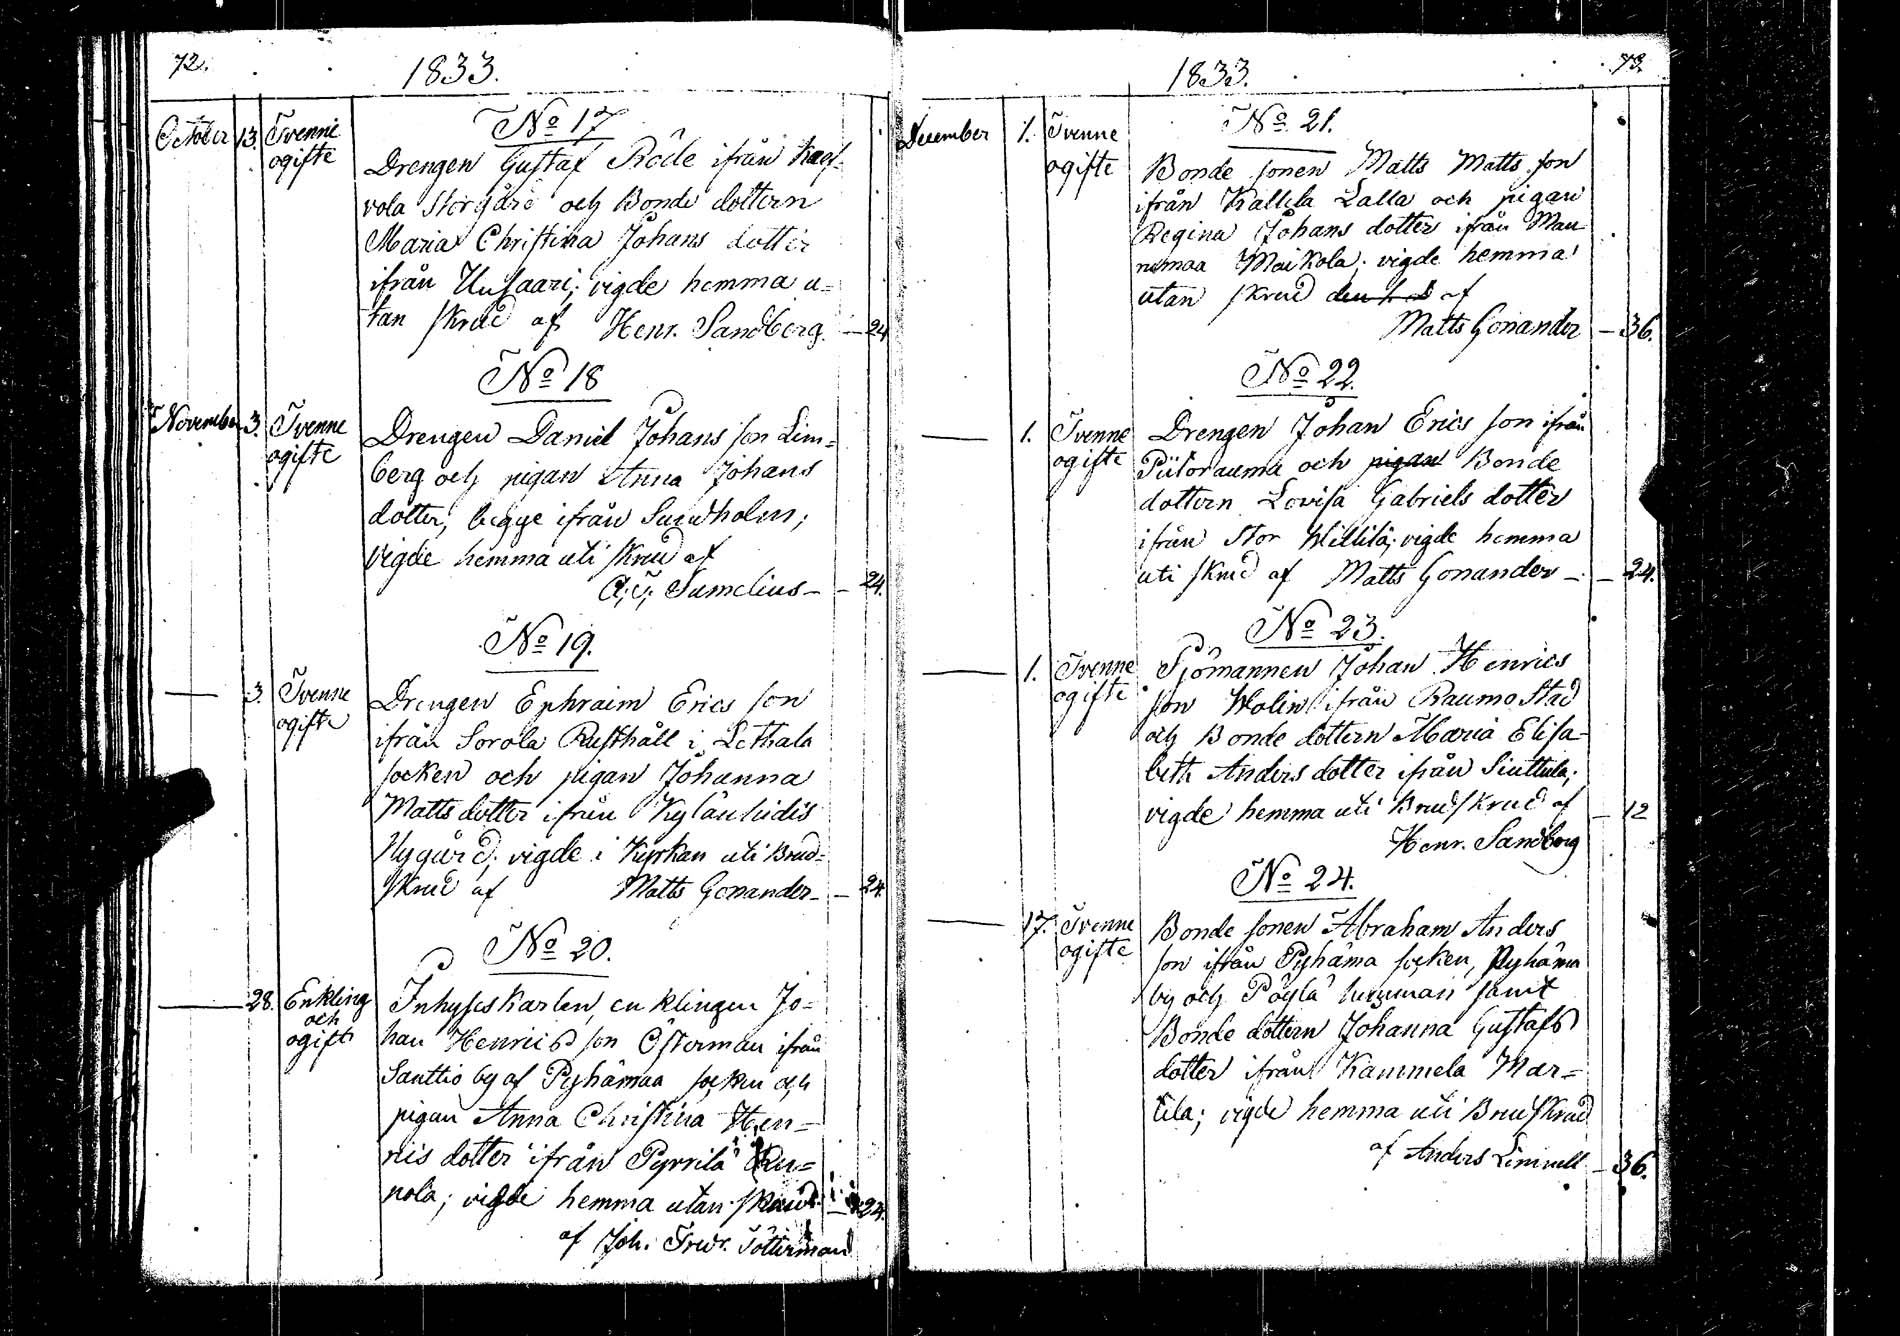 72.
1833.
October 13. Tvenne ogifte
No 17
Drengen Gustaf Röde ifrån
vola Storgård och Bonde dottern
Maria Christina Johans dotter
ifrån Uusaari; vigde hemma u=
tan skrud af Henr. Sandberg. — 24
No 18
November 3. Tvenne ogifte
Drengen Daniel Johans son Lim=
berg och pigan Anna Johans
dotter, begge ifrån Sundholm;
vigde hemma uti skrud af
Sumelius — 24.
No 19.
— 3. Tvenne ogifte
Drengen Ephraim Erics son
ifrån Sorola Rusthåll i Lethala
socken och pigan Johanna
Matts dotter ifrån Kylänhidis
Nygård; vigde i Kyrkan uti Brud=
skrud af Matts Gonander — 24.
No 20.
— 28. Enkling och ogift
Inhyses Karlen, enklingen Jo=
han Henrics son Österman ifrån
Santtio by af Pyhämaa socken och
pigan Anna Christina Hen=
rics dotter ifrån Pyrrilä
nola; vigde hemma utan skrud — 24.
af Joh. Fredr. Tötterman
73.
1833.
December 1. Tvenne ogifte
No 21.
Bonde sonen Matts Matts son
ifrån Kallela Lalla och pigan
Regina Johans dotter ifrån Man
namaa Maikola; vigde hemma
utan skrud af
Matts Gonander — 36.
No 22.
— 1. Tvenne ogifte
Drengen Johan Erics son ifrån
Piilorauma och pigan Bonde
dottern Lovisa Gabriels dotter
ifrån Stor Willilä; vigde hemma
uti skrud af Matts Gonander — 24.
No 23.
— 1. Tvenne ogifte
Sjömannen Johan Henrics
son Wolin ifrån Raumo Stad
och Bonde dottern Maria Elisa-
beth Anders dotter ifrån Siuttula;
vigde hemma uti Brudskrud af — 12
Henr. Sandberg
No 24.
— 17. Tvenne ogifte
Bonde sonen Abraham Anders
son ifrån Pyhäma socken, Pyhäma
by och Pöylä hemman samt
Bonde dottern Johanna Gustafs
dotter ifrån Kammela Mar=
tila; vigde hemma uti Brudskrud
af Anders Limnell — 36.